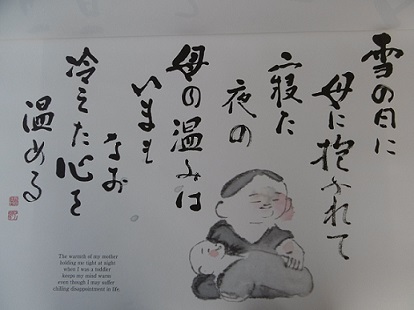 雪の日に
母に抱かれて
寝た
夜の
母の温みは
いまも
なお
冷えた心を
温める
The warmth of my mother
holding me tight at night
when I was a toddler
keeps my mind warm
even though I may suffer
chilling disappointment in life.